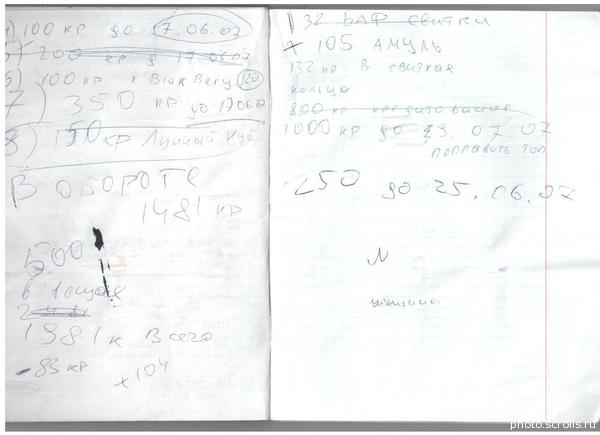 ) 100 кр до 17.06.07
) 200 кр д 17.06.07
6) 100 кр к BlakBery 120
7) 350 кр до 17.06.07
8) 150 кр Лунный Куб
В обороте
1481 кр
500
в
1981 к Всего
-83 кр x104
132 БАФ свитки
x 105 АМУЛЬ
132 кр в свитках
кольца
800 кр кредитование
1000 кр до 29.07.07
поправить топ
250 до 25.06.07
N
photo.scrolls.ru